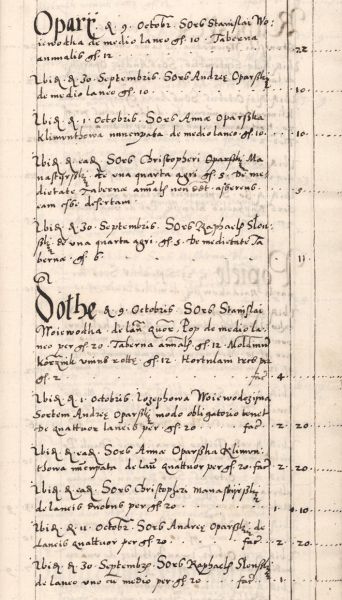 Opari · & · 9 · Octobr · Sors Stanislai Wo:
iewodtha de medio laneo gſ · 10 · Taberna
annualis gſ · 12 · 22
Ibid · & · 30 · Septembris · Sors Andreę Oparſky
de medio laneo gſ · 10 · 10
Ibid · & · 1 · Octobris · Sors Annæ Oparſka
de medio laneo gſ · 10 · 10
Ibid · & · ead · Sors Christopheri Oparſky Ma
naſtyrſky · de una quarta agri gſ · 5 · De me-
dietate Tabernæ annualis non dat · asserens
eam esse desertam · 5
Ibid · & · 30 · Septembris · Sors Raphaelis Slou
ſky · de una quarta agri · gſ · 5 · De medietate Ta
bernæ · gſ · 6 · 11
Dothe · & · 9 · Octobris · Sors Stanislai
Woiewodtha · de lan quor · Pop · de medio la
neo per gſ · 20 · Taberna annualis gſ · 12
gſ · 12 · Hortulani tres per
gſ · 2 · fac · 4
Ibid · & · 1 · Octobris · Woiewodzina
Sortem Andreę Oparſky modo obligatorio tenet
de quattuor laneis per gſ · 20 · fac · 2 · 20
Ibid · & · ead · Sors Annæ Oparſka Klimun
thowa · de lan quattuor per gſ · 20 · fac · 2 · 20
Ibid · & · ead · Sors Christopheri Manaſtyrſky
de laneis duobus per gſ · 20 · fac · 1 · 10
Ibid · & · 11 · Octobr · Sors Andreę Oparſky de
Laneis quattuor per gſ · 20 · fac · 2 · 20
Ibid · & · 30 · Septemb · Sors Raphaelis Slouſky
de laneo uno cum medio per gſ · 20 · fac · 1